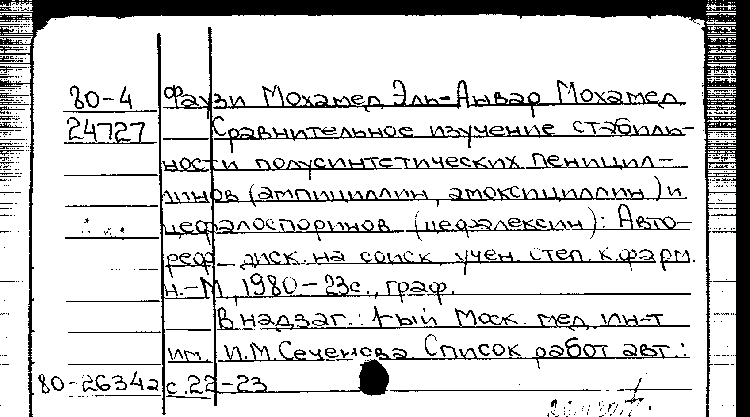 80-4 Фаузи Мохамед Эль-Анвар Мохамед
24727 Сравнительное изучение стабиль-
ности полусинтетических пеницил-
линов (ампициллин, амоксициллин) и
цефалоспоринов (цефалексин): Авто-
реф. дисс. на соиск. учен. степ. к. фарм.
н.-М., 1980-23с., граф.
В надзаг.: 1-ый Моск. мед. ин-т
им. И.М. Сеченова. Список работ авт.:
80-26342 с. 22-23